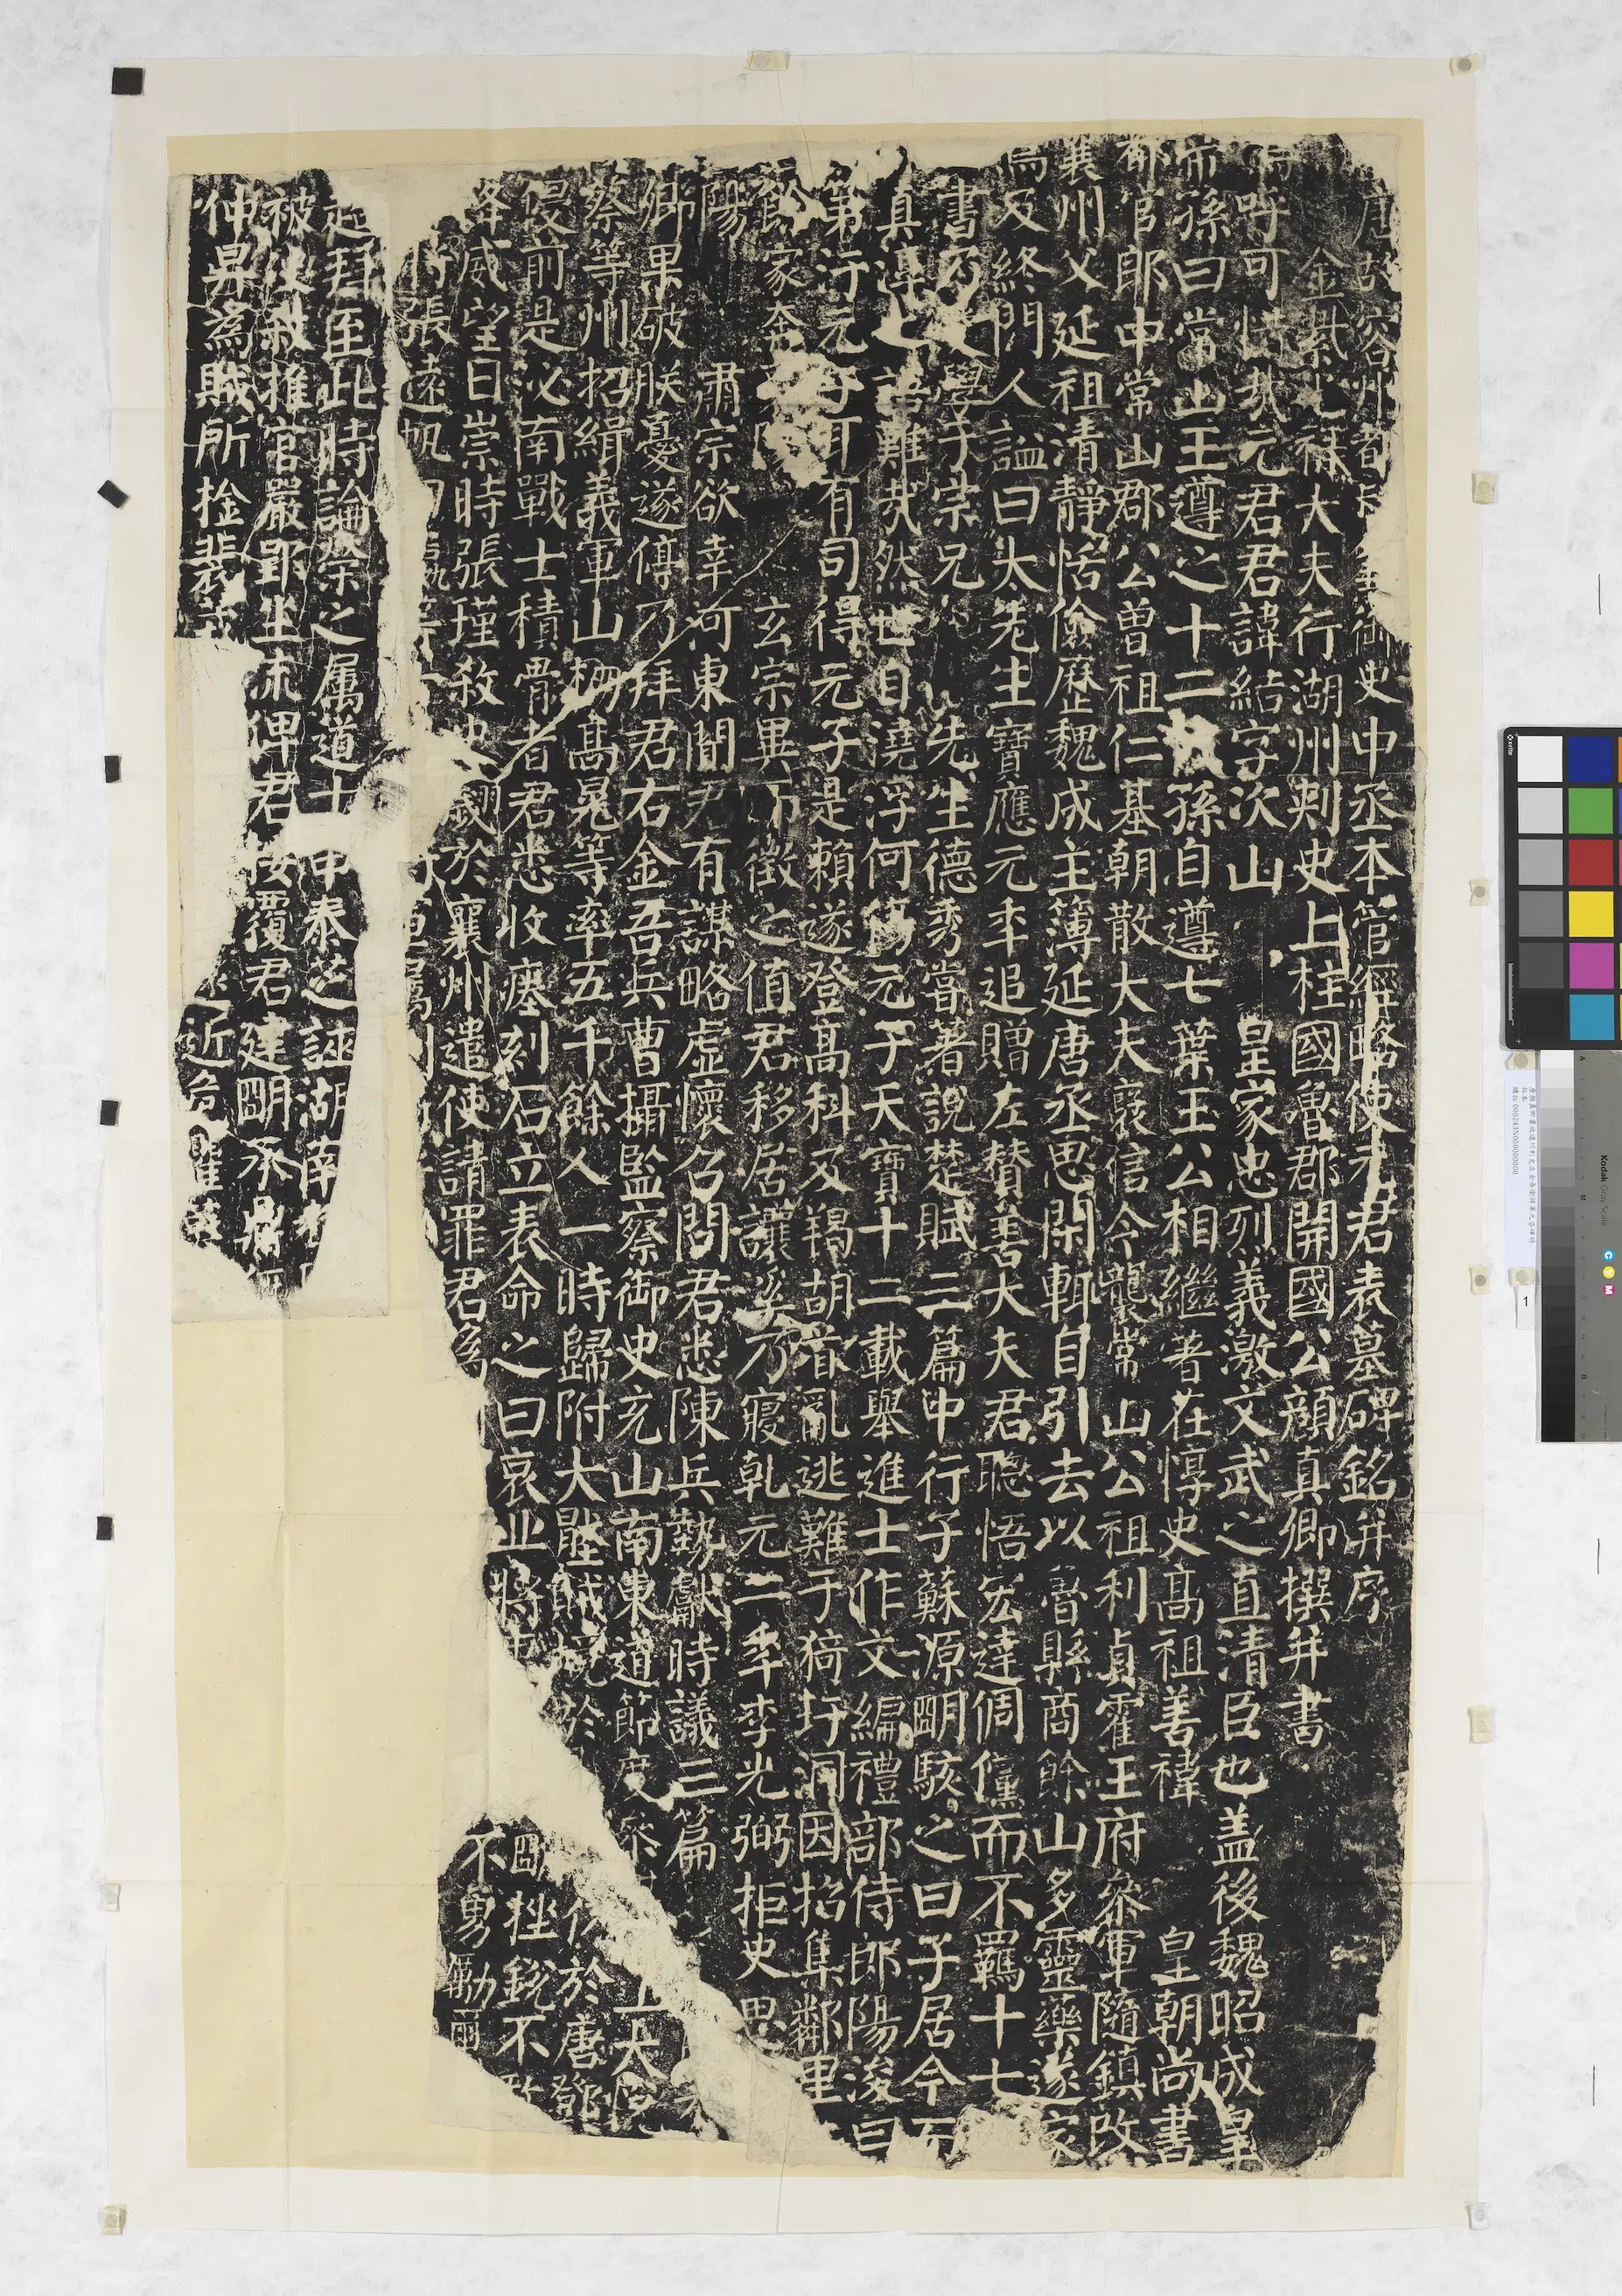 唐故容州都督兼御史中丞本管經略使元君表墓碑銘并序
金紫光祿大夫行湖州刺史上柱國魯郡開國公顏真卿撰并書
嗚呼可惜哉元君君諱結字次山皇家忠烈義激文武之直清臣也盖後魏昭成皇
帝孫曰常山王遵之十二代孫自遵七葉王公相繼著在惇史高祖善禕皇朝尚書
都官郎中常山郡公曾祖仁基朝散大夫襃信令襲常山公祖利貞霍王府參軍隨鎮改
襄州父延祖清靜恬儉歷魏成主簿延唐丞思閑輒自引去以魯縣商餘山多靈藥遂家
焉及終門人謚曰太先生寶應元年追贈左贊善大夫君聰悟宏達倜儻而不羈十七
書乃受學于宗兄先生德秀嘗著說楚賦三篇中行子蘇源明駭之曰子居今而
真淳之語難哉然世自澆浮何傷元子天寶十二載舉進士作文編禮部侍郎陽浚曰
第汙元子耳有司得元子是賴遂登高科及羯胡首亂逃難于猗玗洞因招集鄰里
餘家奔襄陽玄宗異而徵之值君移居讓溪乃寢乾元二年李光弼拒史思
陽肅宗欲幸河東聞君有謀略虛懷召問君悉陳兵勢獻時議三篇
卿果破朕憂遂停乃拜君右金吾兵曹攝監察御史充山南東道節度參
上大悅
蔡等州招緝義軍山棚高晃等率五千餘人一時歸附大壓賊境於
於唐鄧
侵前是泌南戰士積骨者君悉收瘞刻石立表命之曰哀丘將士
挫銳不敢
降威望日崇時張瑾殺史翽於襄州遣使請罪君為
不勇勵
將張遠帆
起拜至此時論榮之屬道士申泰芝誣湖南
被決殺推官嚴郢坐流俾君按覆君建明承鼎
仲昇為賊所擒裴茙
近危